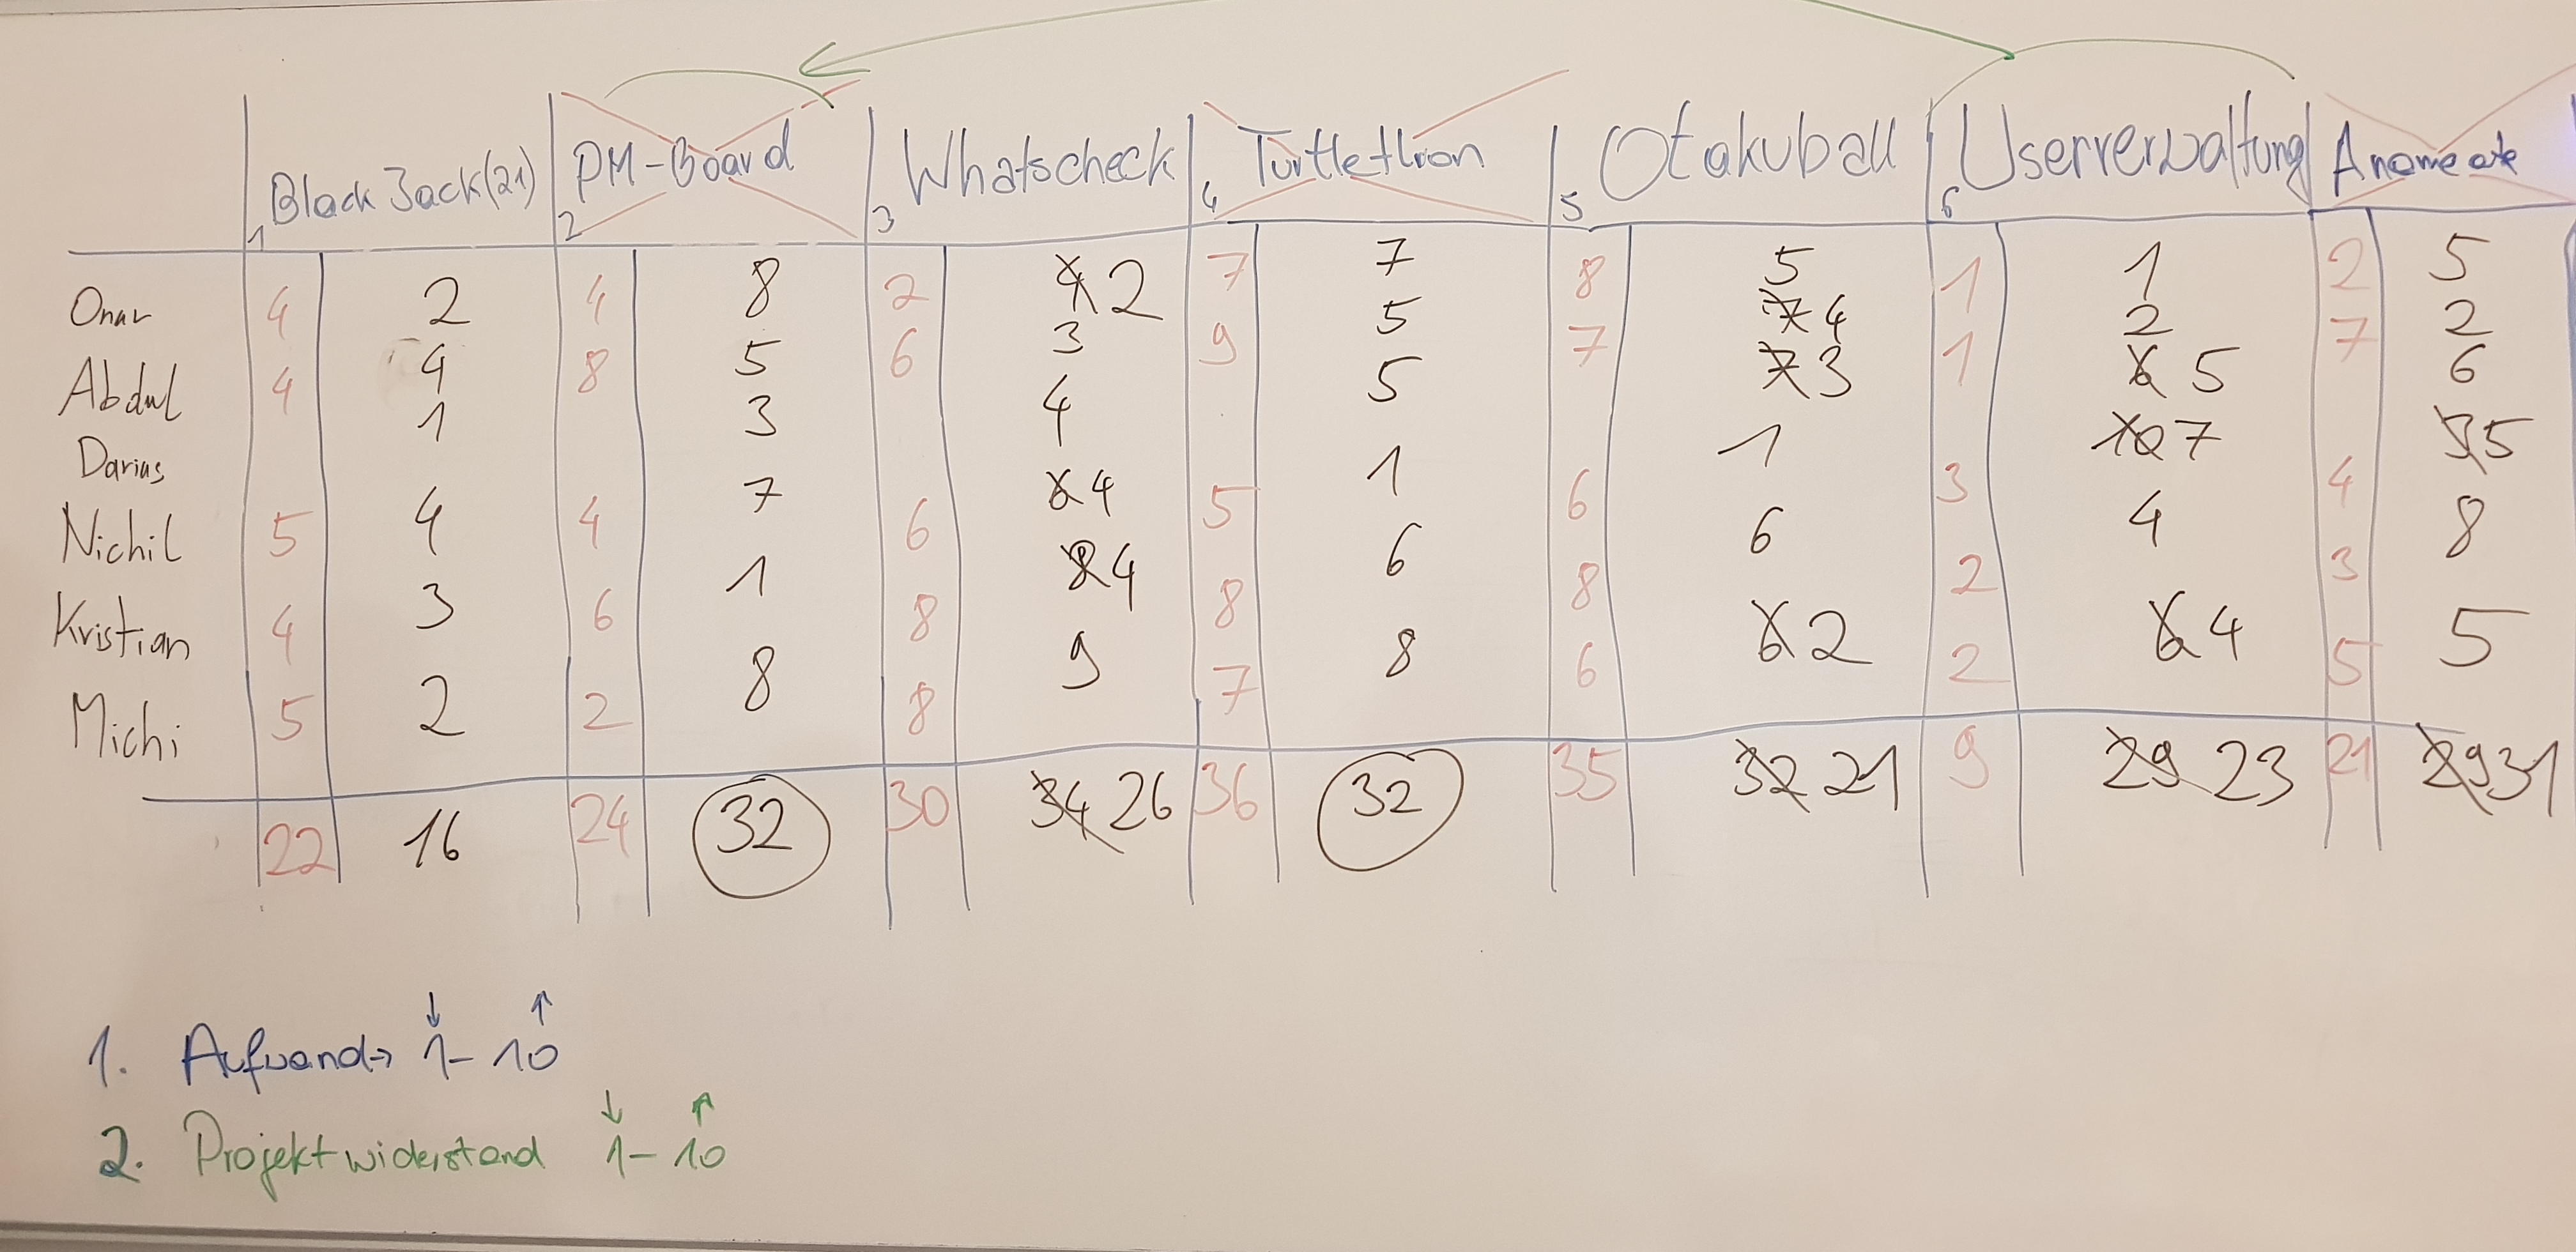 1 Black Jack(21) 2 PM-Board 3 Whatscheck 4 Turtlethron 5 Otakuball 6 Userverwaltung
Onur 4 2 4 8 2 4 2 7 7 8 5 1 1 2 5
Abdul 4 4 8 5 6 3 9 5 7 7 4 1 2 7 2
Darius 1 3 4 5 7 3 1 6 5 6
Nichil 5 4 4 7 6 6 4 5 1 6 1 3 10 7 4 3 5
Kristian 4 3 6 1 8 8 4 8 6 8 6 2 4 3 8
Michi 5 2 2 8 8 9 7 8 6 6 2 2 6 4 5 5
22 16 24 32 30 34 26 36 32 35 32 21 9 29 23 21 29 31
1. Aufwand → ↓ 1 - 10 ↑
2. Projektwiderstand ↓ 1 - 10 ↑